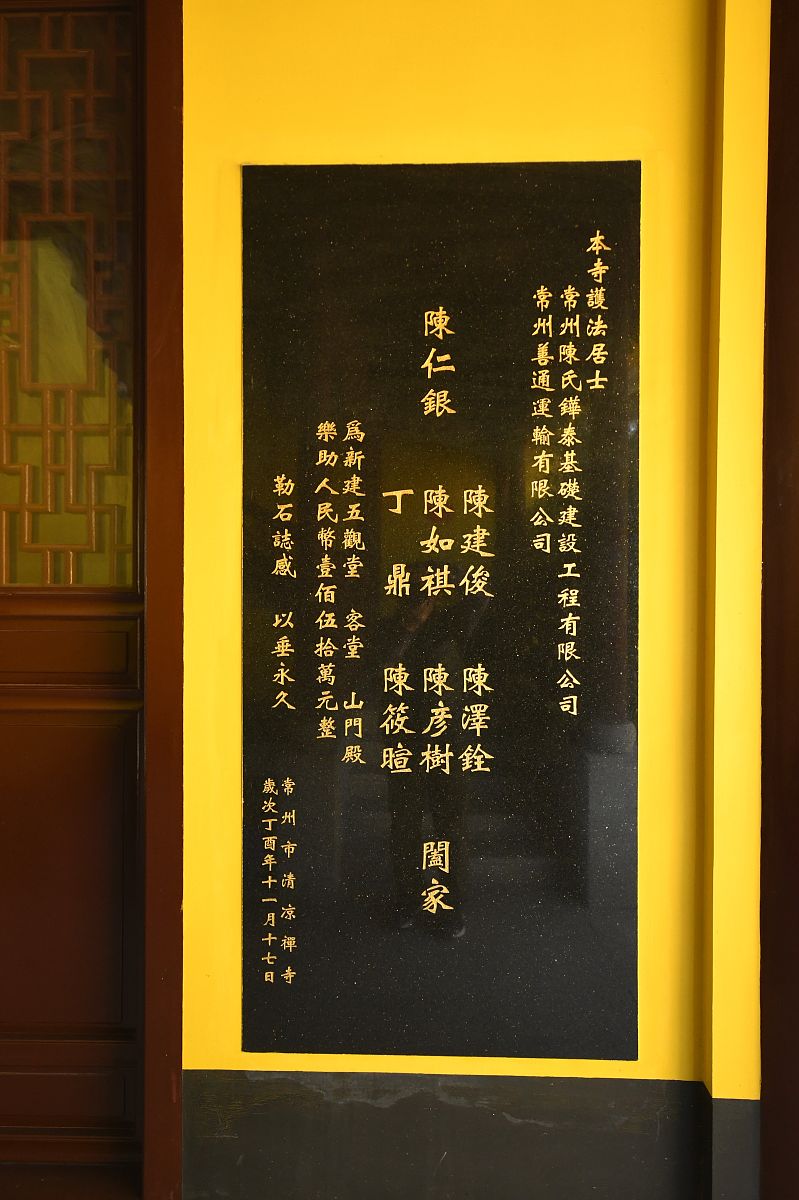 本寺護法居士
常州陳氏鏵泰基礎建設工程有限公司
常州善通運輸有限公司
陳建俊 陳澤銓
陳仁銀 陳如祺 陳彦樹 闔家
丁鼎 陳筱暄
爲新建五觀堂 客堂 山門殿
樂助人民幣壹佰伍拾萬元整
勒石誌感 以垂永久
常州市清凉禪寺
歲次丁酉年十一月十七日